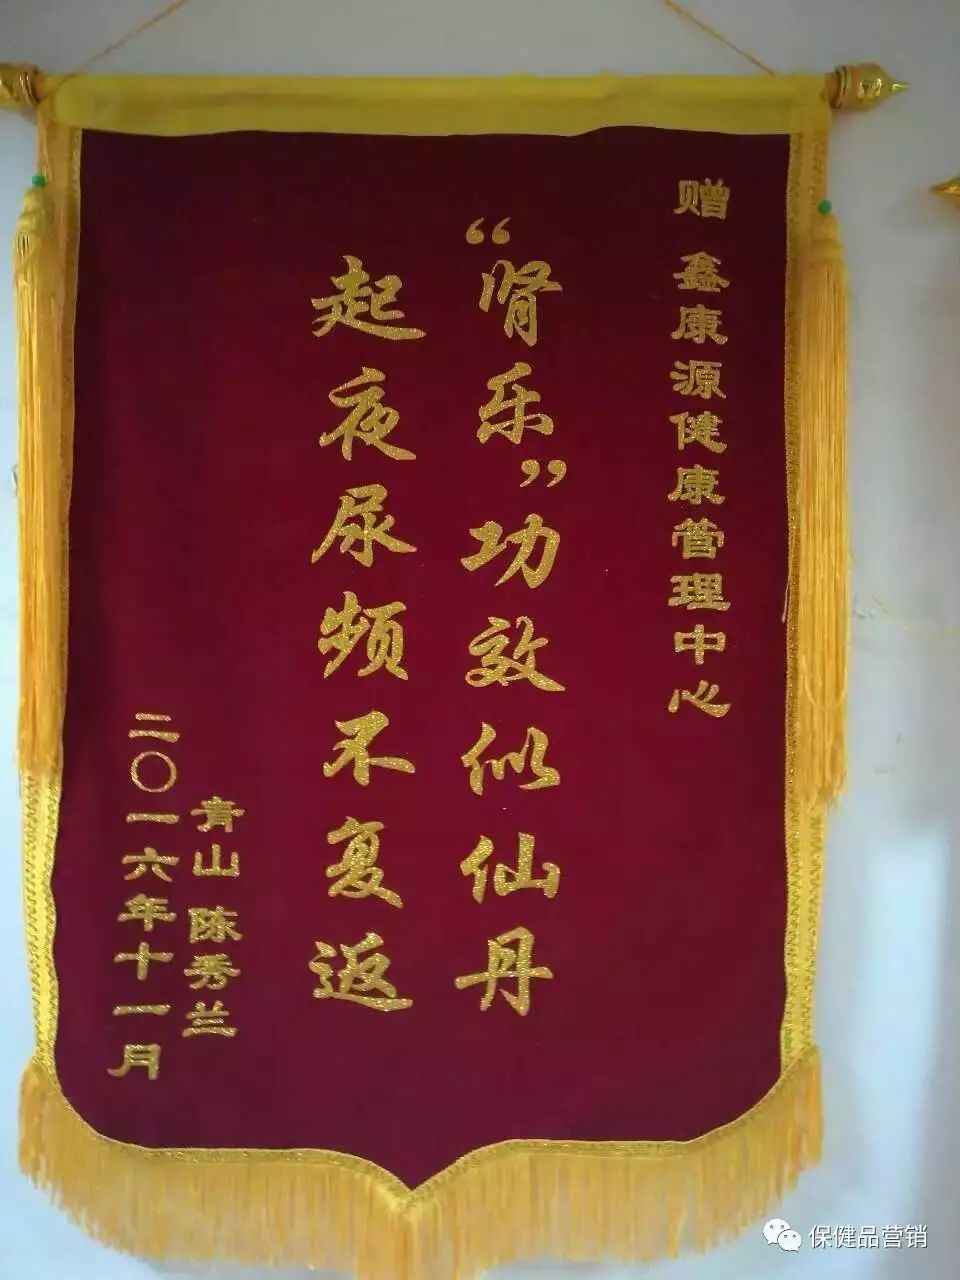 赠 鑫康源健康管理中心
“肾乐”功效似仙丹
起夜尿频不复返
青山 陈秀兰
二〇一六年十一月
保健品营销